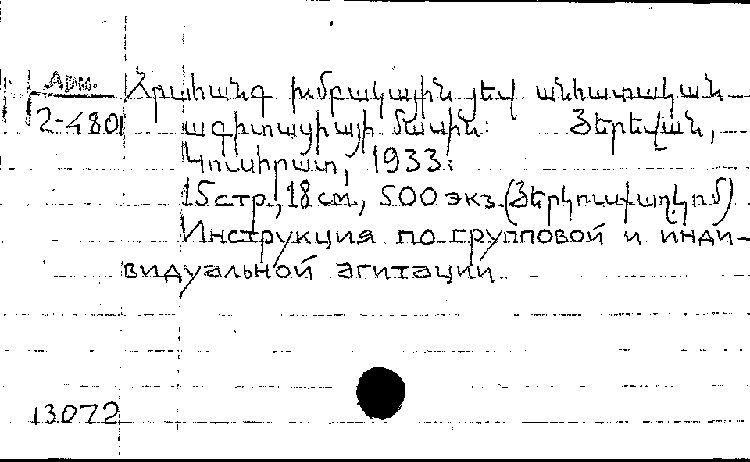 Арм.
2-4801
Հրահանգ խմբակային յեվ անհատական
ագիտացիայի մասին: Յերեվան,
Կուսհրատ, 1933:
15 стр., 18 см., 500 экз. (Յերկուսքաղկոմ)
Инструкция по групповой и инди-
видуальной агитации.
13072